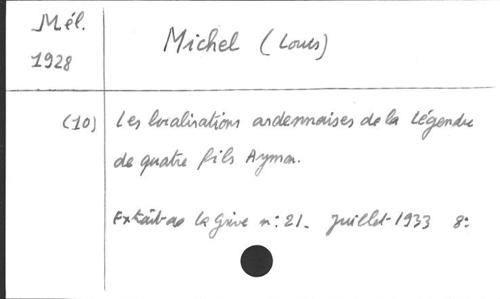 Mél.
1928
Michel (Louis)
(10) Les localisations ardennaises de la Légende
de quatre fils Aymon.
Extrait de La Grive n: 21. juillet-1933 8: